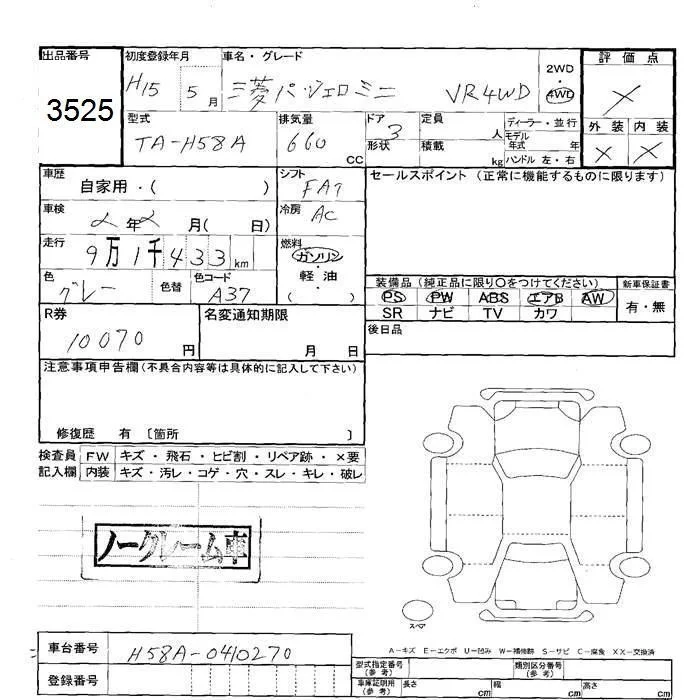 出品番号 初度登録年月 車名・グレード 2WD・4WD 評価点
3525 H15 5月 三菱パジェロミニ VR4WD ×
型式 排気量 ドア 定員 ディーラー・並行 外装 内装
TA-H58A 660cc 3 人 モデル年式 年 × ×
形状 積載 kg ハンドル 左・右
車歴 シフト セールスポイント(正常に機能するものに限ります)
自家用・( ) FAT
車検 冷房
年 月( 日) AC
走行 燃料
9万1千433km ガソリン・軽油( )
色 色替 色コード 装備品(純正品に限り〇をつけてください) 新車保証書
グレー A37 PS PW ABS エアB AW 有・無
R券 名変通知期限 SR ナビ TV カワ
10070円 月 日 後日品
注意事項申告欄(不具合内容等は具体的に記入して下さい)
修復歴 有 〔箇所 〕
検査員 FW キズ・飛石・ヒビ割・リペア跡・×要
記入欄 内装 キズ・汚レ・コゲ・穴・スレ・キレ・破レ
ノークレーム車
スペア
A-キズ E-エクボ U-凹み W-補修跡 S-サビ C-腐食 XX-交換済
車台番号 H58A-0410270
登録番号
型式指定番号(参考) 類別区分番号(参考)
車庫証明用(参考) 長さ cm 幅 cm 高さ cm